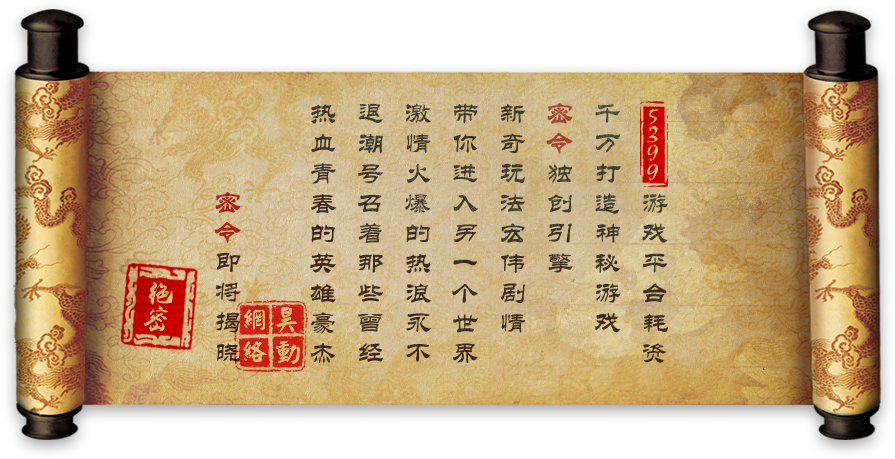 5399游戏平台耗资
千万打造神秘游戏
密令独创引擎
新奇玩法宏伟剧情
带你进入另一个世界
激情火爆的热浪永不
退潮号召着那些曾经
热血青春的英雄豪杰
昊動
網絡
密令即将揭晓
绝密